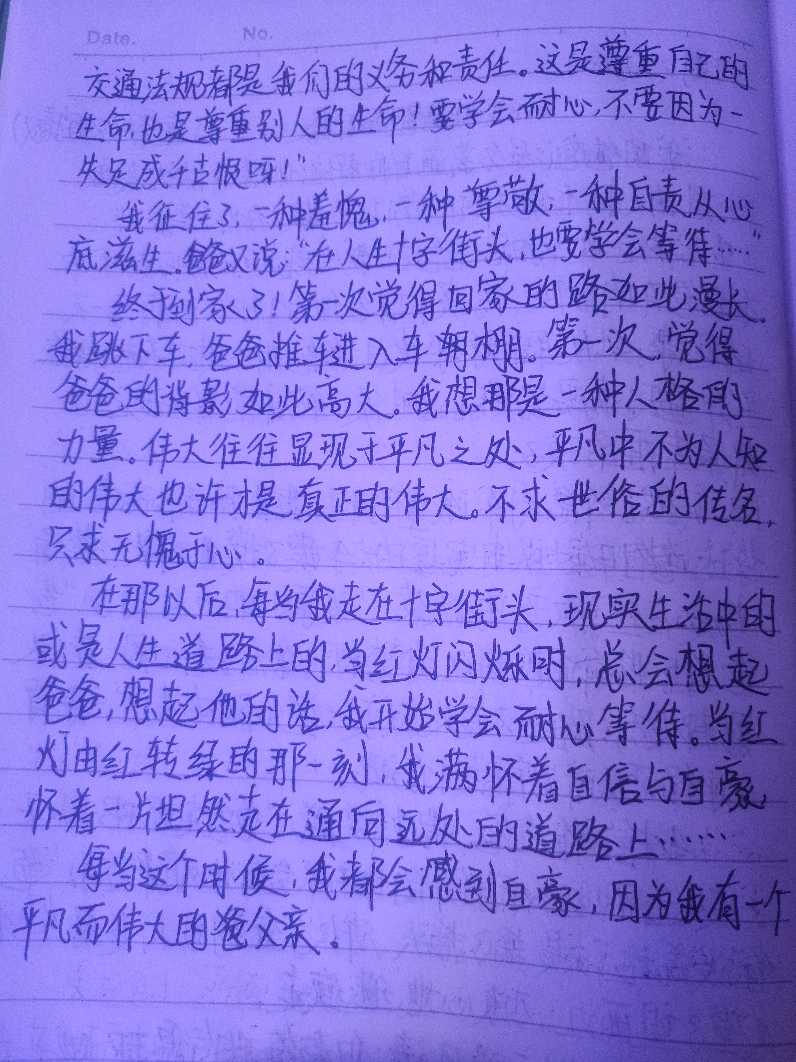 Date.
No.
交通法规都是我们的义务和责任。这是尊重自己的
生命,也是尊重别人的生命!要学会耐心,不要因为一
失足成千古恨呀!"
我怔住了,一种羞愧,一种尊敬,一种自责从心
底滋生。爸爸又说:"在人生十字街头,也要学会等待……"
终于到家了!第一次觉得回家的路如此漫长。
我跳下车,爸爸推车进入车棚。第一次,觉得
爸爸的背影如此高大。我想那是一种人格的
力量。伟大往往显现于平凡之处,平凡中不为人知
的伟大也许才是真正的伟大。不求世俗的传名,
只求无愧于心。
在那以后,每当我走在十字街头,现实生活中的
或是人生道路上的,当红灯闪烁时,总会想起
爸爸,想起他的话,我开始学会耐心等待。当红
灯由红转绿的那一刻,我满怀着自信与自豪,
怀着一片坦然走在通向远处的道路上……
每当这个时候,我都会感到自豪,因为我有一个
平凡而伟大的爸父亲。